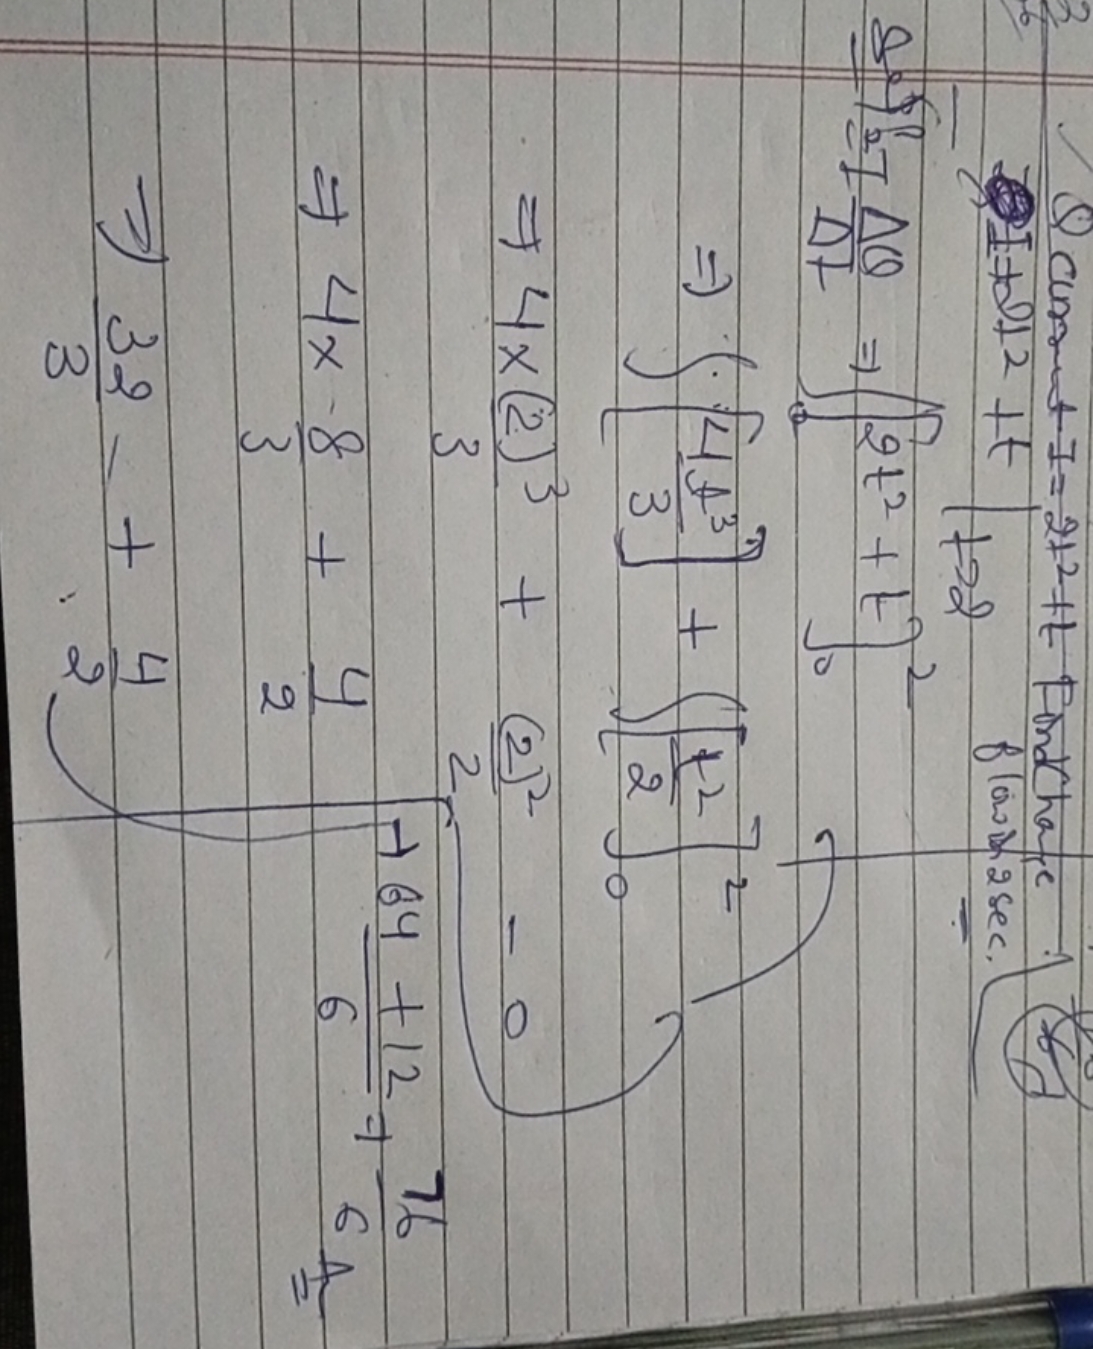 Q Current I = 2t² + t Find Charge
flow in 2 sec.
I + 2t² + t
t → 2
Sol² I = ΔQ/Δt ⇒ ∫[2t² + t]₀²
⇒ ∫[4t³/3] + ∫[t²/2]₀²
⇒ 4×(2)³/3 + (2)²/2 - 0
⇒ 4× 8/3 + 4/2
⇒ 32/3 + 4/2
→ 64 + 12/6 = 76/6 A